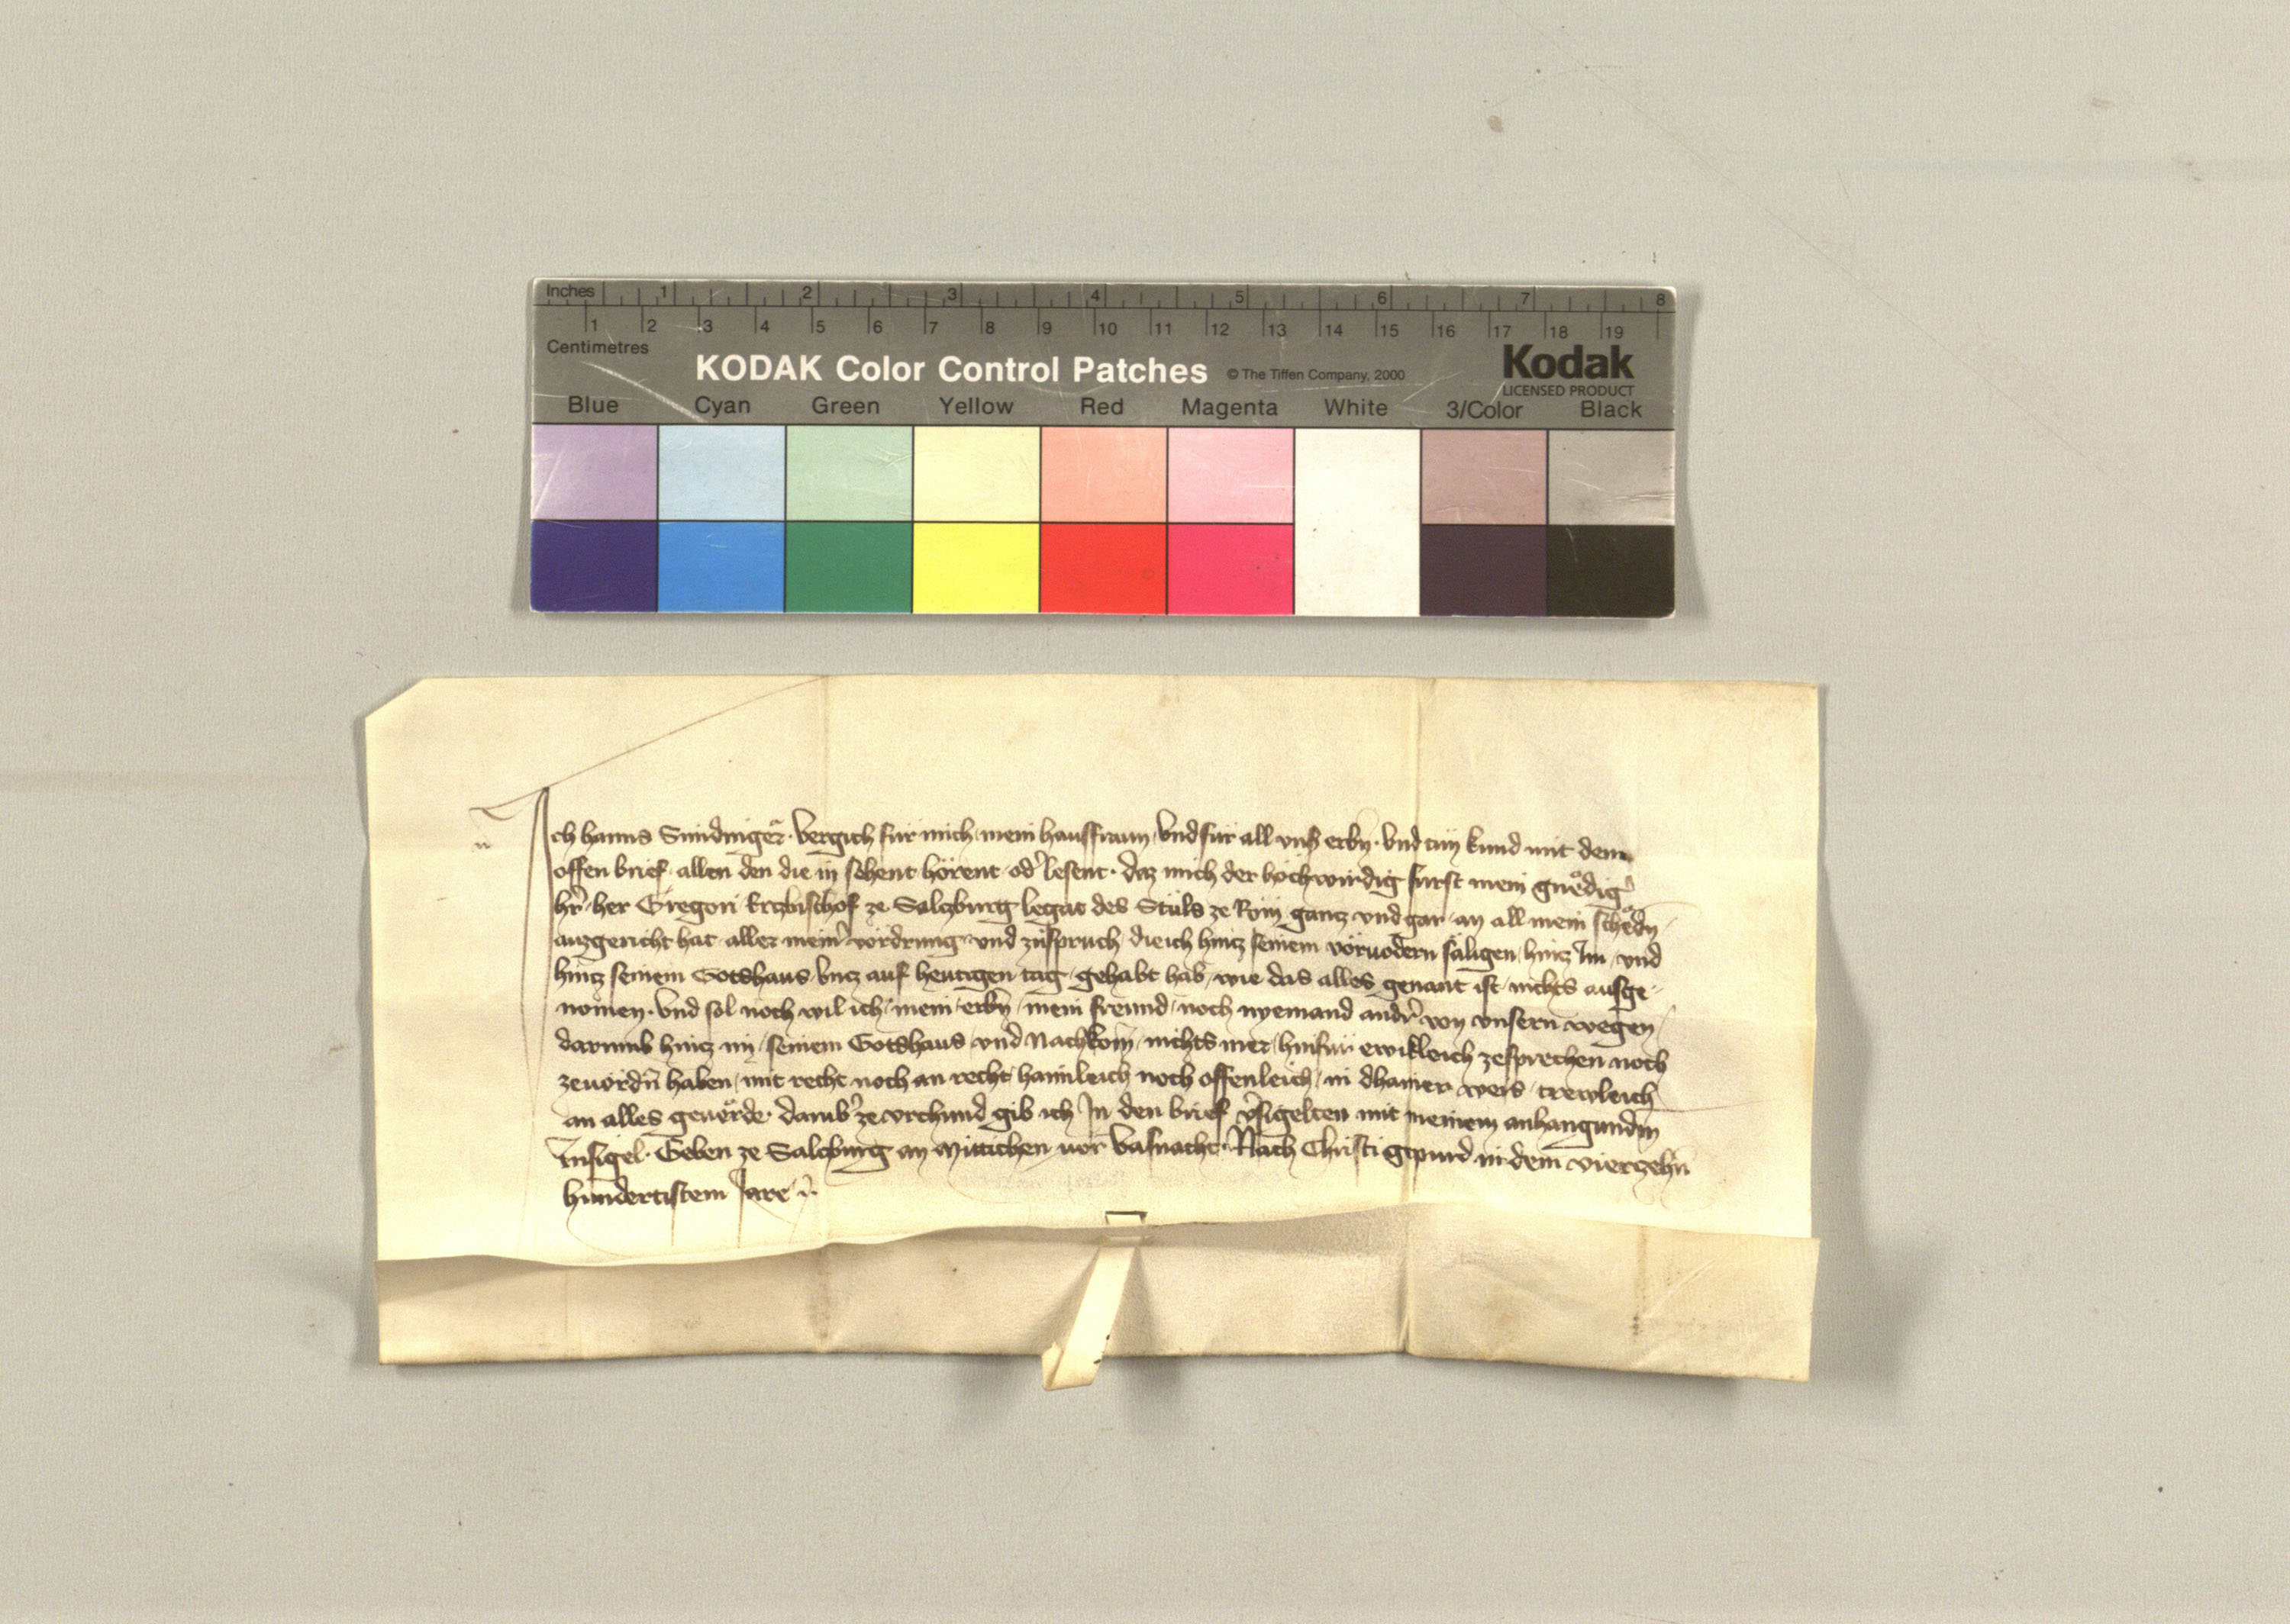 Inches 1 2 3 4 5 6 7 8
1 2 3 4 5 6 7 8 9 10 11 12 13 14 15 16 17 18 19
Centimetres
KODAK Color Control Patches © The Tiffen Company, 2000 Kodak
LICENSED PRODUCT
Blue Cyan Green Yellow Red Magenta White 3/Color Black
Ich hanns Sundinger · vergich für mich mein hausfraun / vnd für all vnß erbn̄ · vnd tůn kund mit dem
offen brief · allen den die in sehent hörent · od̾ lesent · daz mich der hochwirdig fürst mein gnͤdig̾
hr̄ · her Gregori Ertzbischof ze Salczburg legat des Stůls ze Rom̄ gantz vnd gar an all mein schͤdn̄
ausgericht hat aller mein̾ vordrung vnd zůspruch die ich hintz seinem voruodern sͤligen / hintz Im / vnd
hintz seinem Gotshaus vntz auf heutigen tag / gehabt hab / wie das alles genant ist / nichts ausge-
nomen · vnd sol noch wil ich / mein erbn̄ / mein freund / noch nyemand and̾r von vnsern wegen /
darumb hintz im / seinem Gotshaus vnd Nachkom̄ / nichts mer / hinfür ewikleich zesprechen noch
zeuordn̄ haben / mit recht noch an recht / haimleich noch offenleich / in dhainer weis / trewleich
an alles geuͤrde · darub̾ ze vrchund gib ich In den brief v̾sigelten mit meinem anhangundm̄
Insigel · Geben ze Salczburg an Mittichen vor Vasnacht · Nach Christi gepurd in dem vierzehn̄
hundertistem Jare